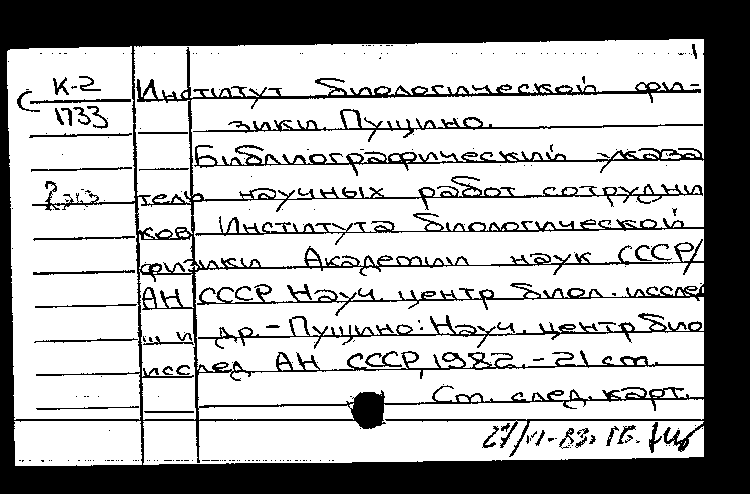 К-2
1733
Институт биологической фи=
зики. Пущино.
Библиографический указа
тель научных работ сотрудни
ков Института биологической
физики Академии наук СССР/
АН СССР Науч. центр биол. исслед
... и др. - Пущино: Науч. центр био
исслед. АН СССР, 1982. - 21 ст.
См. след. карт.
27/VI-83г